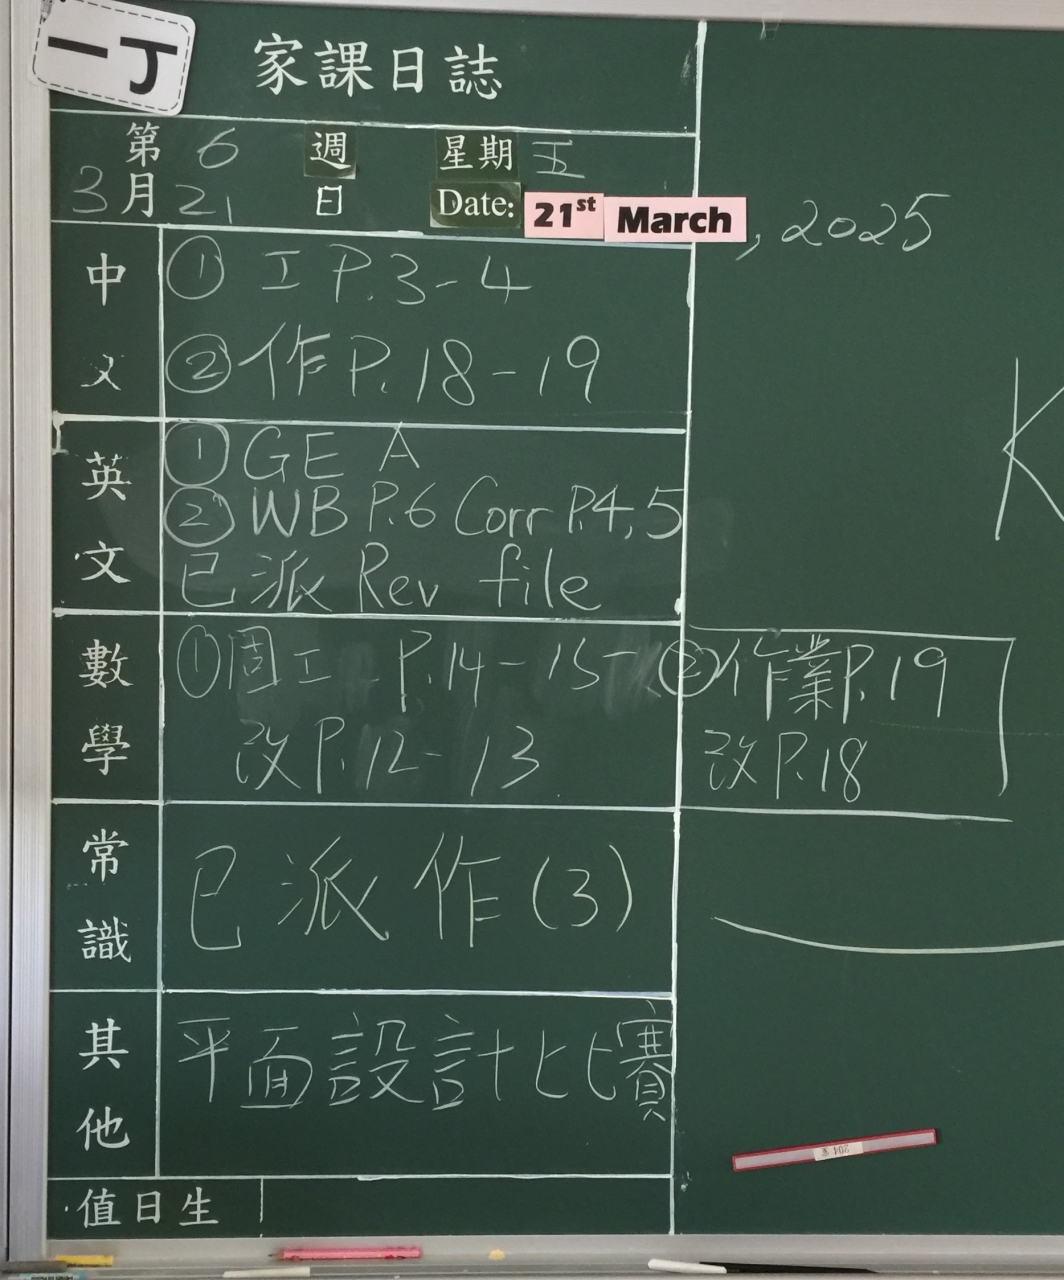 一丁
家課日誌
第 6 週 星期 五
3月21日 Date: 21st March, 2025
中文
① 工 P.3-4
② 作 P.18-19
英文
① GE A
② WB P.6 Corr P.4,5
已派 Rev file
數學
① 固工 P.14-15 ② 作業P.19
改P.12-13 改P.18
常識
已派作(3)
其他
平面設計比賽
值日生
K